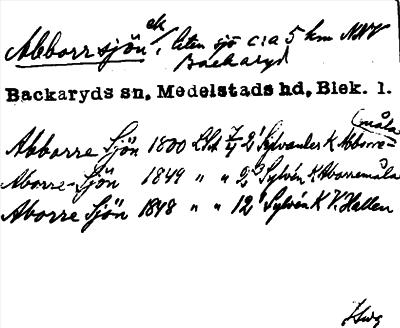 Abborrsjön ek/, liten sjö c:a 5 km NNV
Backaryd
Backaryds sn, Medelstads hd, Blek. l.
Abborre Sjön 1800 LSA 7/4 2¹ Sylvander K Abborre-
måla
Aborre-Sjön 1849 " " 2³ Sylvén K Aborremåla
Aborre Sjön 1848 " " 12¹ Sylvén K V. Hallen